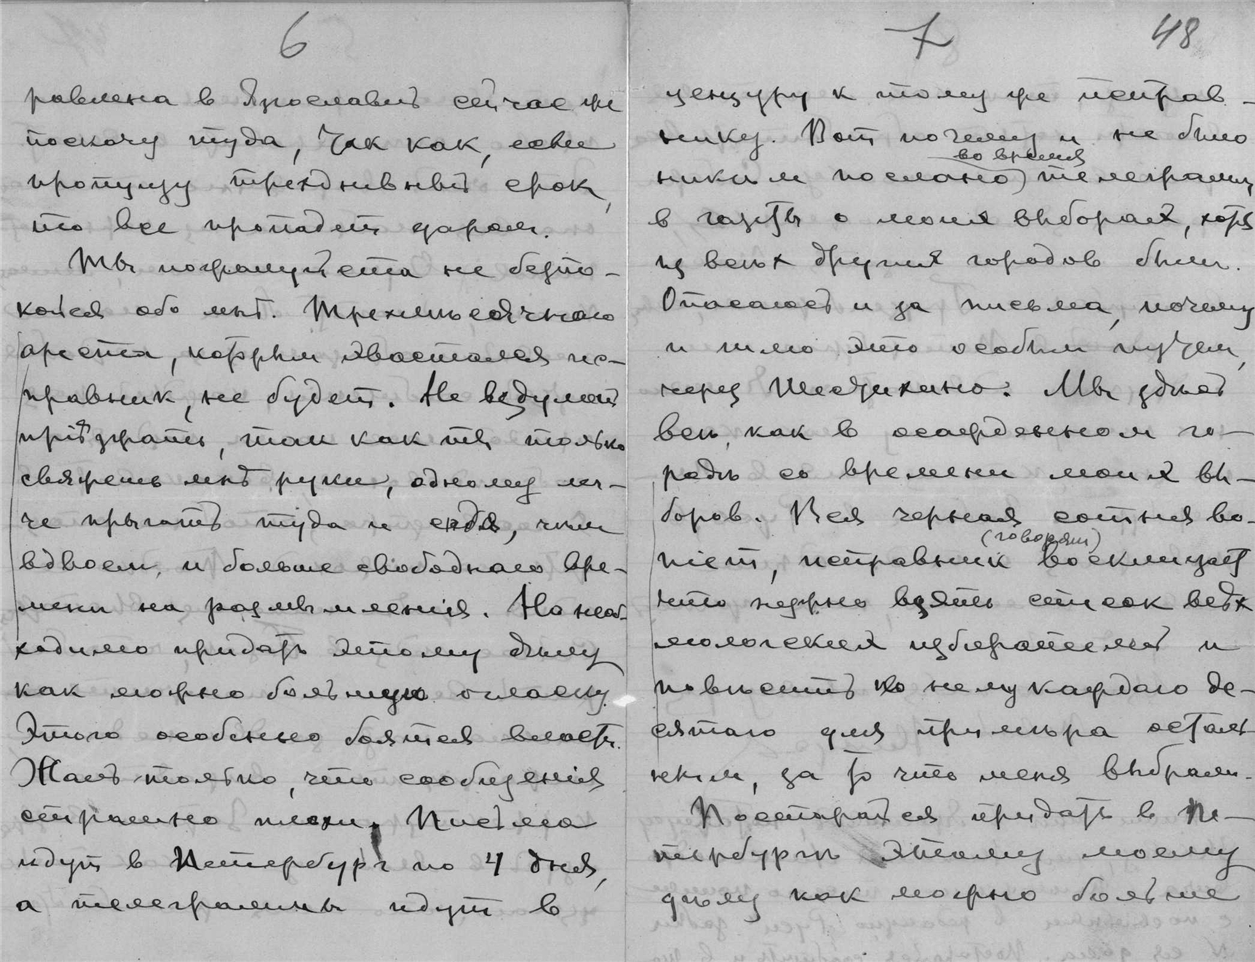 6
равлена в Ярославль сейчас же
поскачу туда, так как, если
пропущу трехдневный срок,
то все пропадет даром.
Ты пожалуйста не безпо-
койся обо мнѣ. Трехмѣсячнаго
ареста, которым хвастался ис-
правник, не будет. Не вздумай
пріѣзжать, так как ты только
свяжешь мнѣ руки, одному лег-
че прыгать туда и сюда, чѣм
вдвоем, и больше свободнаго вре-
мени на размышленія. Но необ-
ходимо придать этому дѣлу
как можно большую огласку.
Этого особенно боятся власти.
Жаль только, что сообщенія
страшно плохи. Письма
идут в Петербург по 4 дня,
а телеграммы идут в
7 48
цензуру к тому же исправ-
нику. Вот почему и не было
во время
никѣм послано телеграммы
в газеты о моих выборах, хотя
из всѣх других городов были.
Опасаюсь и за письма, почему
и шлю это особым путем,
через Шестихино. Мы здѣсь
всѣ, как в осажденном го-
родѣ со времени моих вы-
боров. Вся черная сотня во-
(говорят)
піет, исправник восклицает
что нужно взять список всѣх
мологских избирателей и
повѣсить по нему каждаго де-
сятаго для примѣра осталь-
ным, за то что меня выбрали.
Постарайся придать в Пе-
тербургѣ этому моему
дѣлу как можно больше